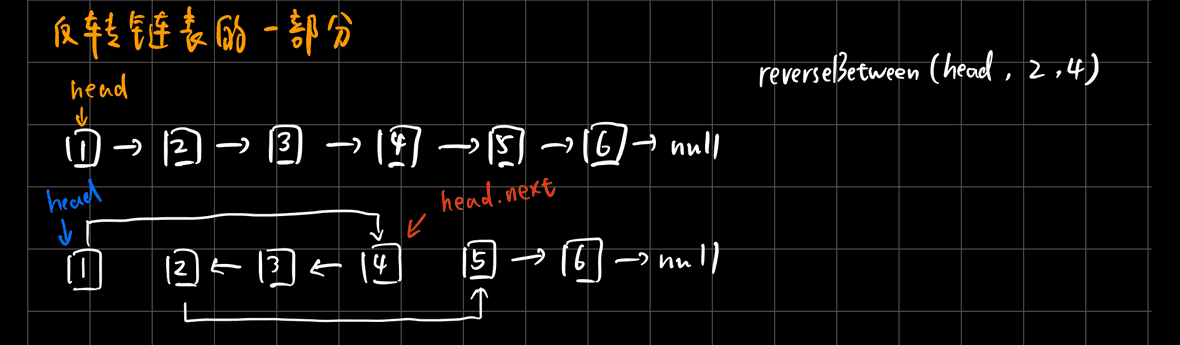 反转链表的一部分
reverseBetween(head, 2, 4)
head
1 → 2 → 3 → 4 → 5 → 6 → null
head
head.next
1 2 ← 3 ← 4 5 → 6 → null